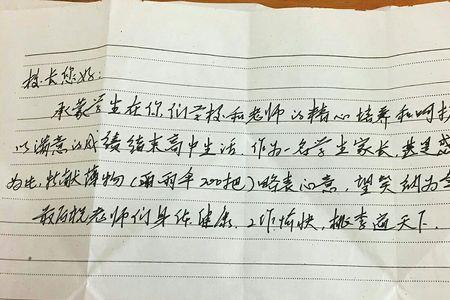 校长您好:
承蒙学生在你们学校和老师的精心培养和呵护
以满意的成绩结束高中生活,作为一名学生家长,甚是感
为此,特献博物(雨伞200把)略表心意,望笑纳为
最后祝老师们身体健康,工作愉快,桃李遍天下.